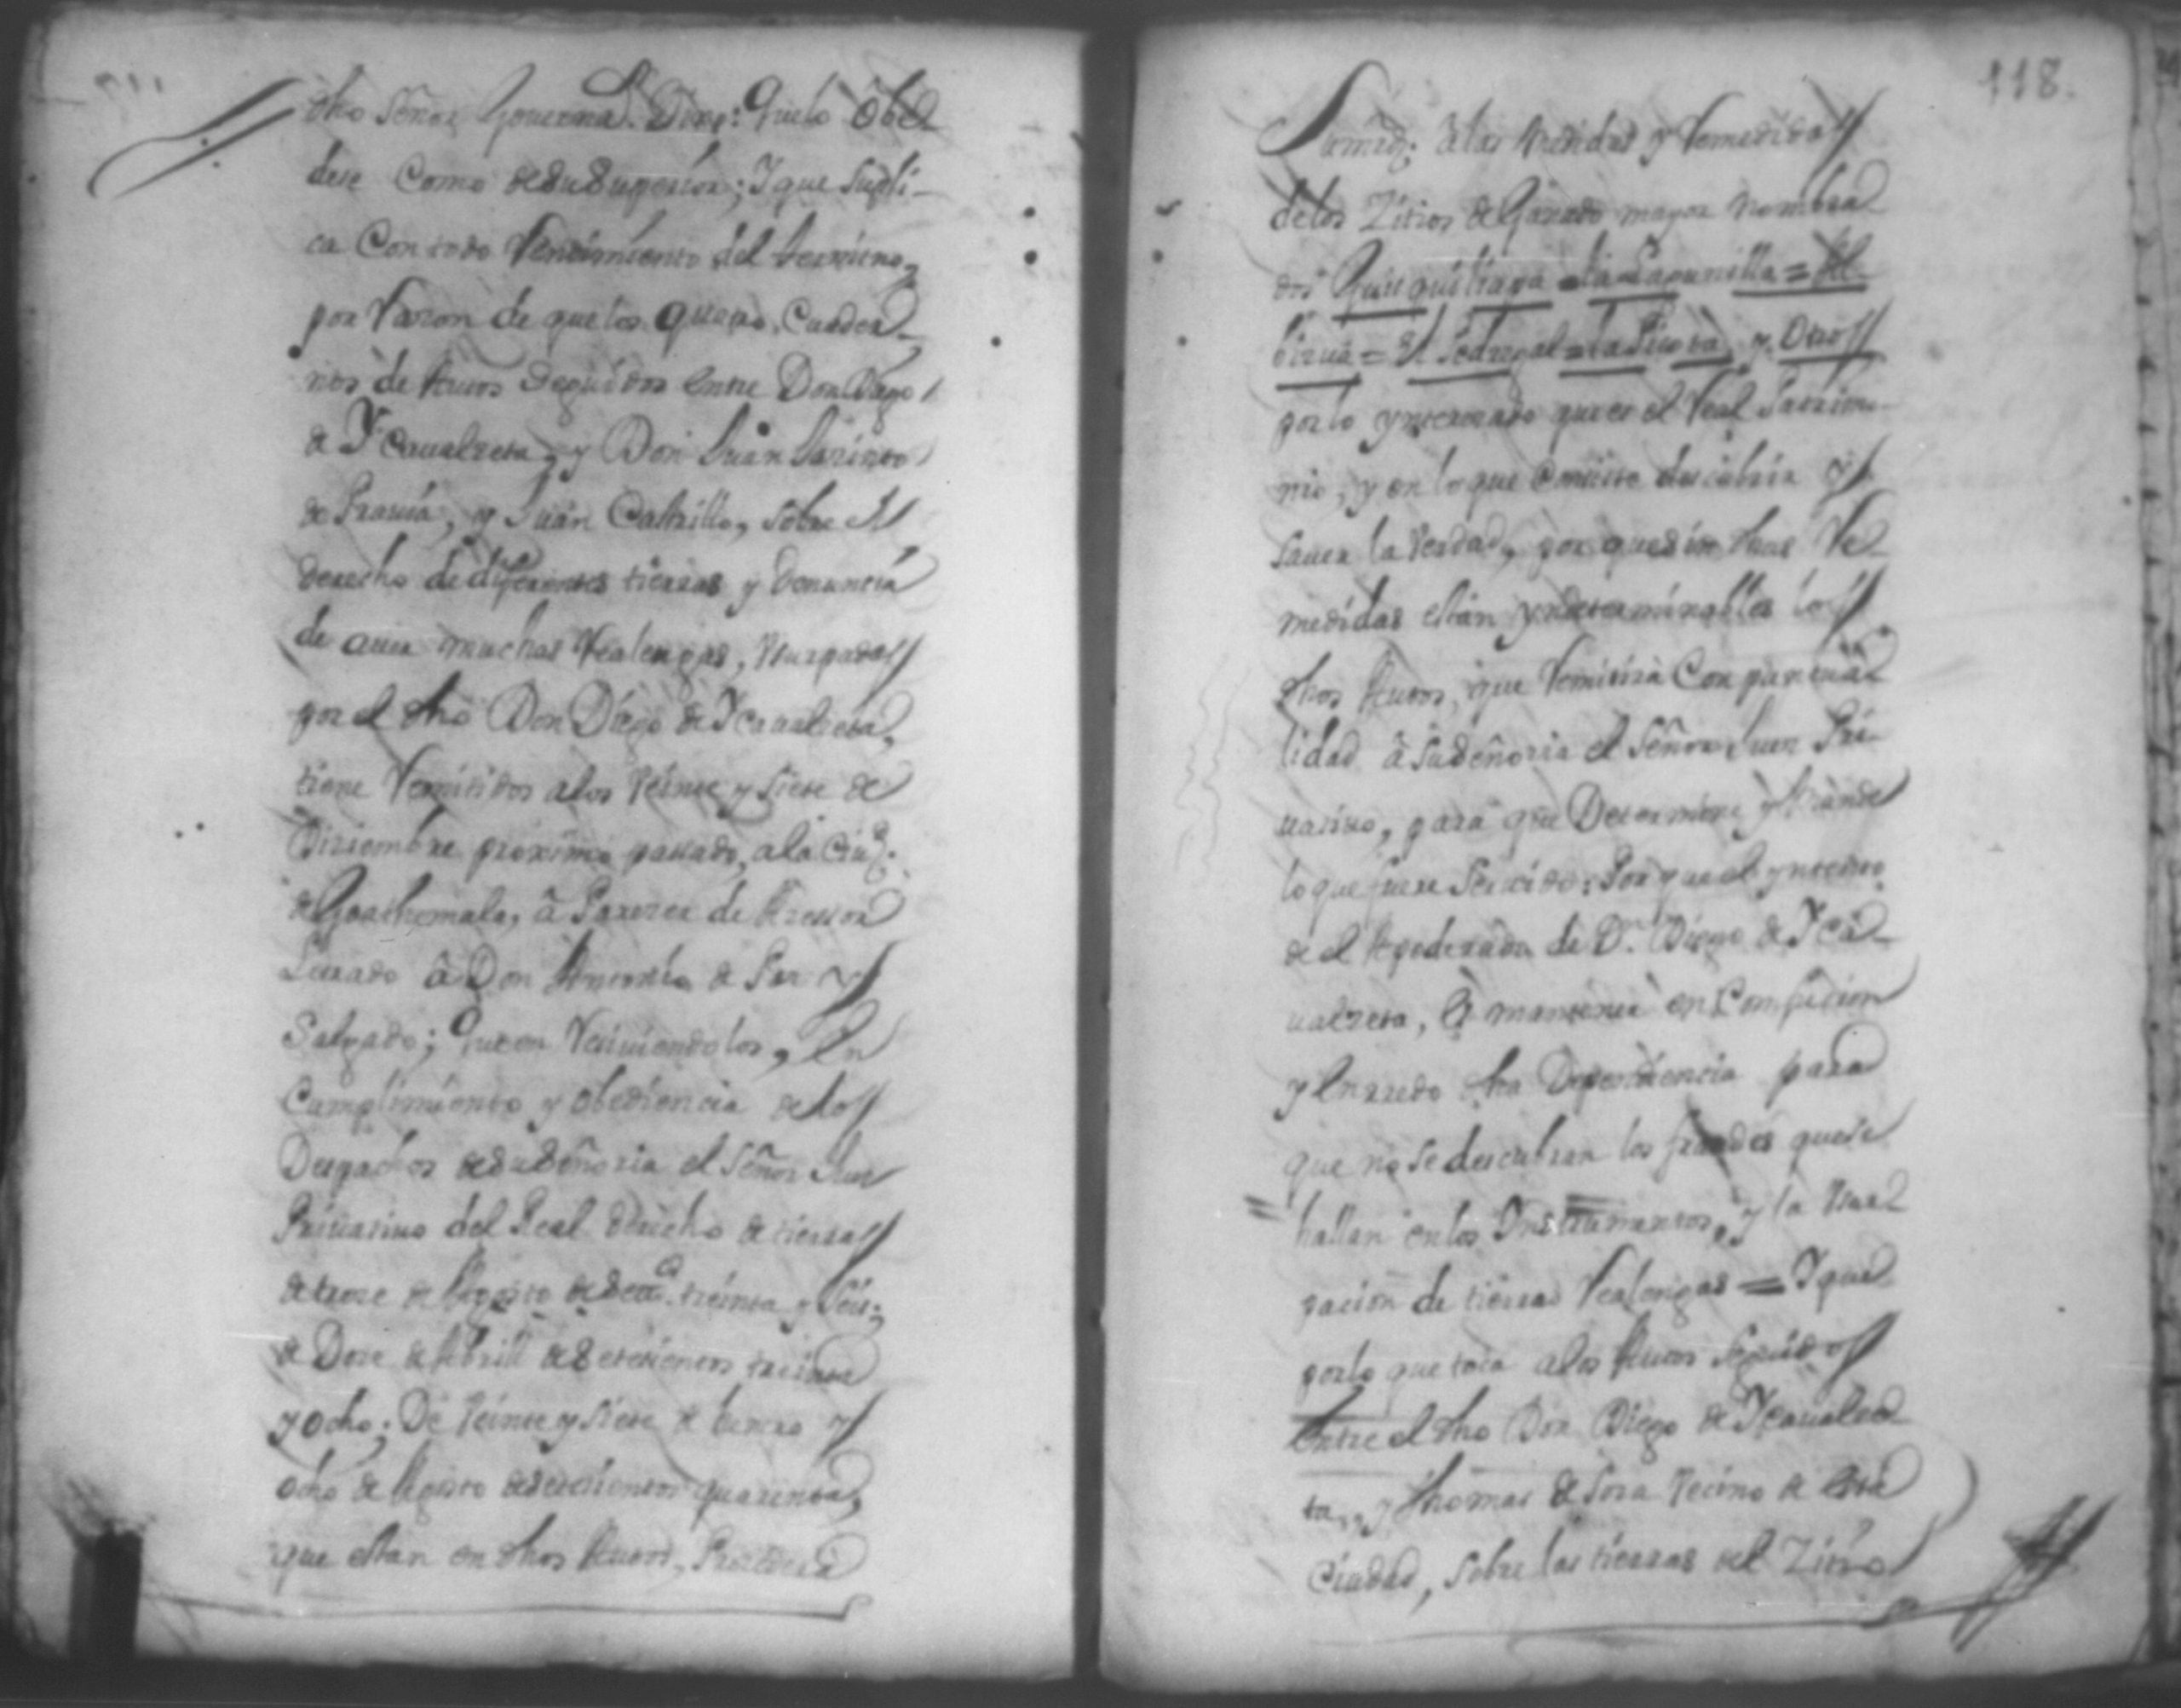 dho Señor Governad.r Dixo: Que lo obe-
dese Como de su Superior; Y que supli-
ca Con todo Rendimiento del termino,
por Razon de que los quatro Cuader-
nos de Autos Seguidos entre Don Diego
de Ycaualzeta, y Don Juan
de Gracia, y Juan Castrillo, sobre el
derecho de diferentes tierras y Denuncia
de auer muchas Realengas, Usurpadas
por el dho Don Diego de Ycaualzeta,
tiene Remitidos a los Veinte y siete de
Diziembre proximo passado, a la Ciud.
de Goathemala, â Parezer de Assessor
Letrado â Don Antonio de Paz y
Salgado; Que en Reciuiendolos, En
Cumplimiento y obediencia de los
Despachos de su Señoria el Señor Juez
Priuatiuo del Real derecho de tierras
de treze de Agosto de Setec.s treinta y Seis;
de Doze de Abrill de Setecientos treinta
y Ocho; De Veinte y Siete de Henero y
ocho de Agosto de Setecientos quarenta,
que estan en dhos Autos, Procederá
118.
Sumrd. â las Medidas y Remedidas
de los Zitios de Ganado mayor Nombra-
dos = la Lagunilla = El
= El Pedregal = y Otros
por lo ynteresado que es el Real Patrimo-
nio, y en lo que Consiste descubrir y
sauer la Verdad, por que sin Unas Re-
medidas están yndeterminables los
dhos Autos, que Remitirá Con puntua-
lidad â Su Señoria el Señor Juez Pri-
uatiuo, para que Determine y Mande
lo que fuere Seruido: Por que el yntento
de el Apoderado de D.n Diego de Yca-
ualzeta, es mantener en Confucion
y Enrredo dha Dependencia para
que no se descubran los fraudes que se
hallan en los Instrumentos, y la Usur-
pacion de tierras Realengas = Y que
por lo que toca a los Autos Seguidos
Entre el dho Don Diego de Ycaualze-
ta, y Thomas de Sosa Vecino de esta
Ciudad, Sobre las tierras del Zitio